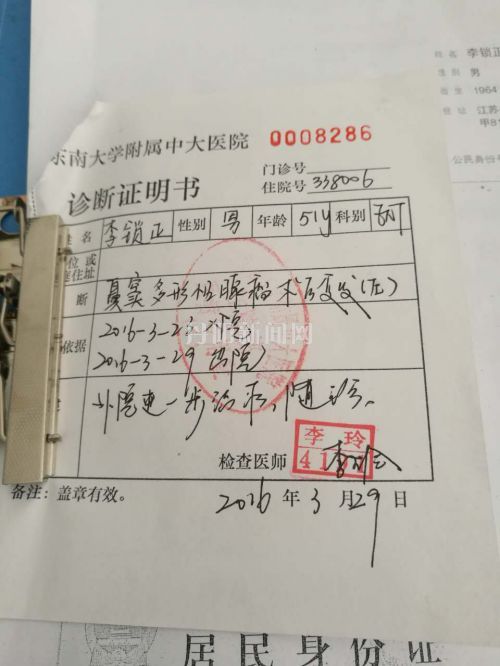 东南大学附属中大医院 0008286
诊断证明书
门诊号
住院号 338006
姓名 李锁正 性别 男 年龄 51y 科别
位或
住址
断 多形性腺瘤术后复发(左)
依据 2016-3-23 入院
2016-3-29 出院
外院进一步治疗,随诊。
李玲
检查医师
备注：盖章有效。
2016年3月29日
丹阳新闻网
姓名 李锁正
性别 男
1964
住址 江苏
甲81
公民身份
居民身份证